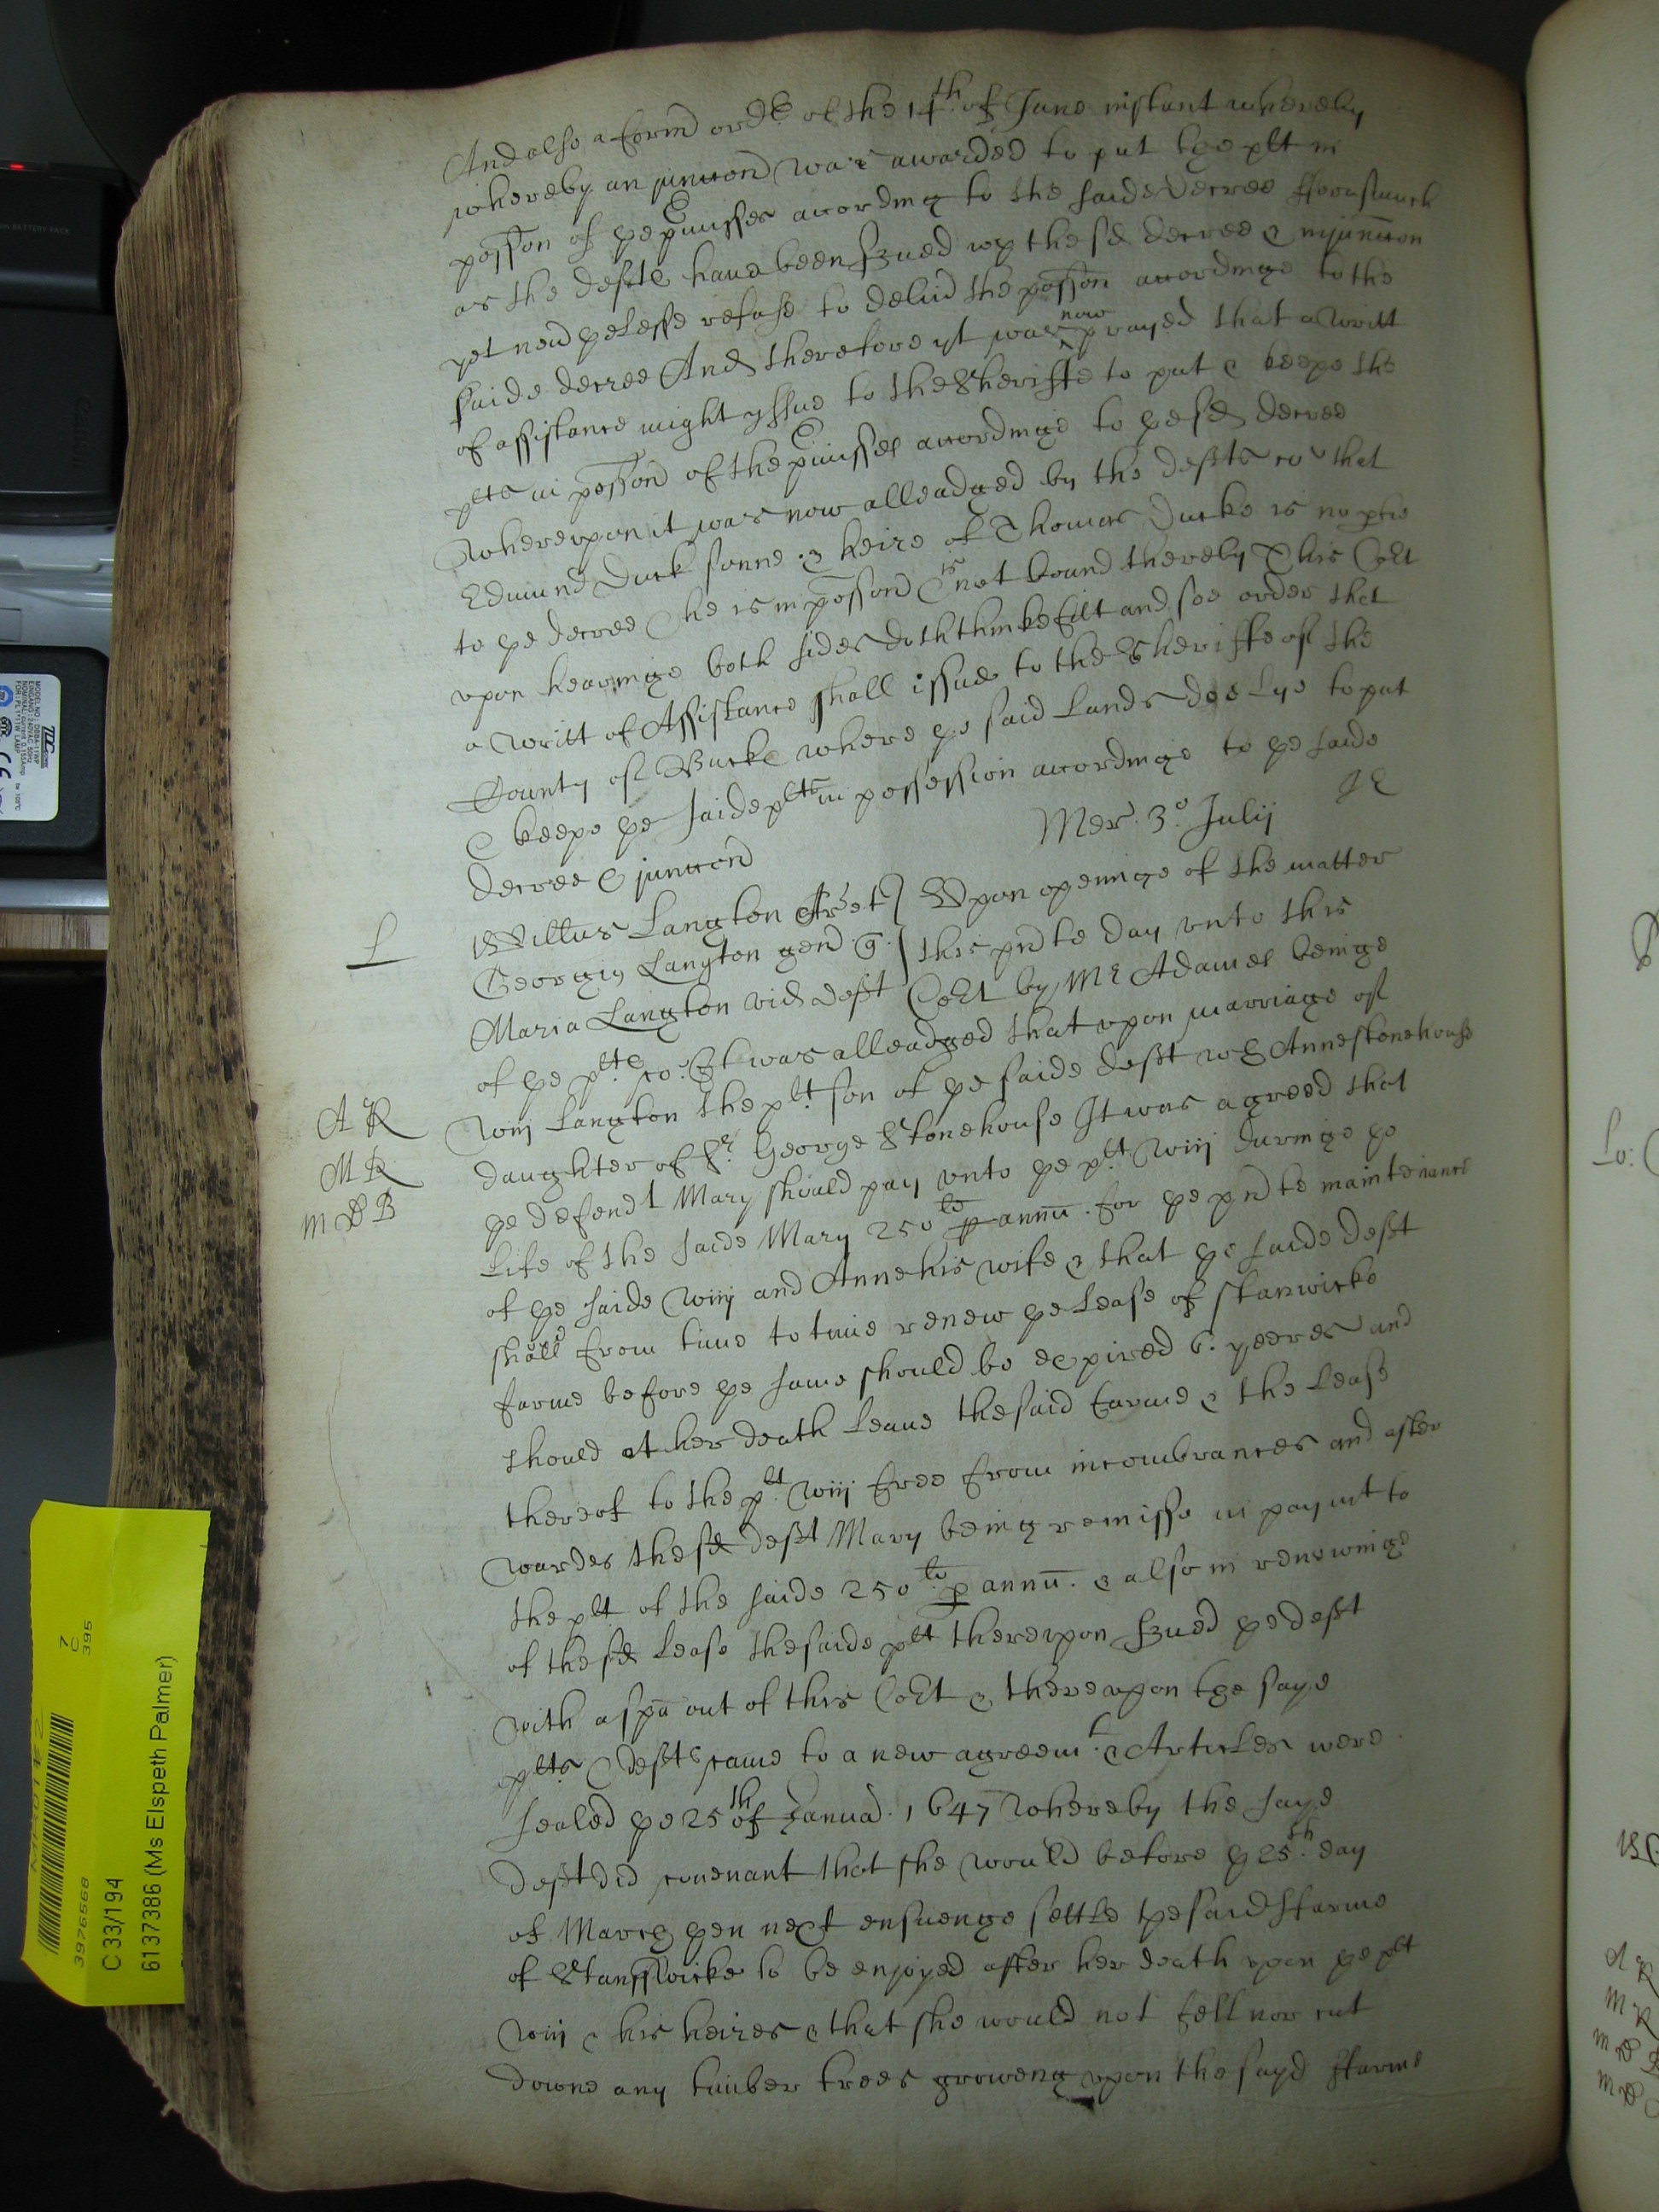 And also a form ordr of the 14th of June instant whereby
whereby an junccon was awarded to put the plt in
possion of ye pmisses according to the saide decree Fforasmuch
as the defte haue been serued wth the sd decree & injunccon
yet neu yelesse refuse to deliu the possion accordinge to the
saide decree And therefore yt was now prayed that a writt
of assistance might yssue to the Sheriffe to put & keepe the
plte in possion of the pmisses accordinge to ye sd decree
Wherevpon it was now alleadged by the defte co that
Edmund Duck sonne & heire of Thomas Ducke is no ptie
to ye decree & he is in possion & is not bound thereby This Cort
vpon hearinge both sides doth thinke fitt and soe order that
a Writt of Assistance shall issue to the Sheriffe of the
County of Buck where ye said Lands doe lye to put
& keepe ye saide plte in possession accordinge to ye saide
decree & junccon
JE
Mer. 3o Julij
L
Willus Langton Ar et
Georgius Langton gen q
Maria Langton vid deft
Vpon openinge of the matter
this pnte day vnto this
Cort by Mr Adames beinge
of ye plte co. It was alleadged that vpon marriage of
AR
Wm Langton the plt son of ye saide deft wth Anne Stonehouse
MR
daughter of Sr George Stonehouse It was agreed that
ye defendt Mary should pay vnto ye plt Wm duringe ye
life of the saide Mary 250li p annu. for ye pnte maintenance
of ye saide Wm and Anne his wife & that ye saide deft
should from time to time renew ye Lease of Stanwicke
farme before ye same should be expired 6. yeeres and
should at her death leaue the said farme & the Lease
thereof to the plt Wm free from incombrances and after
wardes the sd deft Mary being remisse in paymt to
the plt of the saide 250li p annu. & also in renewinge
of the sd Lease the saide plt therevpon serued ye deft
with a spa out of this Cort & therevpon the saye
plte & defte came to a new agreemt. & Articles were
sealed ye 25th of Januar. 1647 Whereby the saye
deft did couenant that she would before ye 25th. day
of March yen next ensuenge settle the said Ffarme
of Stanswicke to be enjoyed after her death vpon ye plt
Wm & his heires & that she would not fell nor cut
downe any timber trees groweng vpon the sayd Ffarme
3976568
7
C
395
C 33/194
6137386 (Ms Elspeth Palmer)